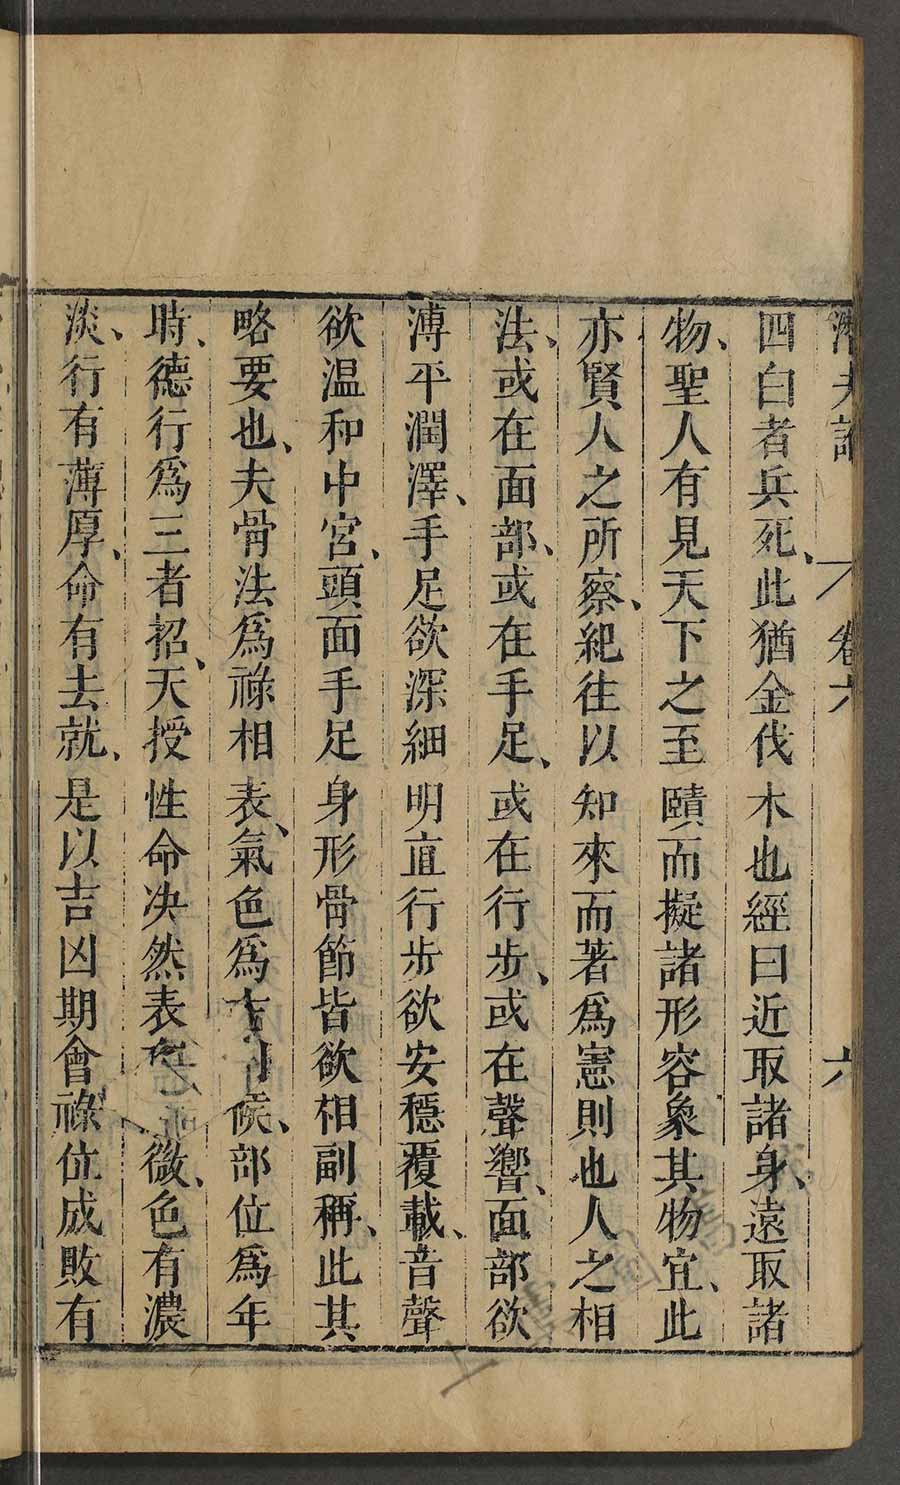 潛夫論 卷六 六
四白者兵死、此猶金伐木也經曰近取諸身、遠取諸
物、聖人有見天下之至賾而擬諸形容象其物宜、此
亦賢人之所察、紀往以知來而著爲憲則也人之相
法、或在面部、或在手足、或在行步、或在聲響、面部欲
溥平潤澤、手足欲深細明直行步欲安穩覆載、音聲
欲温和中宮、頭面手足身形骨節皆欲相副稱、此其
略要也、夫骨法爲祿相表、氣色爲吉凶候、部位爲年
時、德行爲三者招、天授性命决然表有微、色有濃
淡、行有薄厚、命有去就、是以吉凶期會祿位成敗有